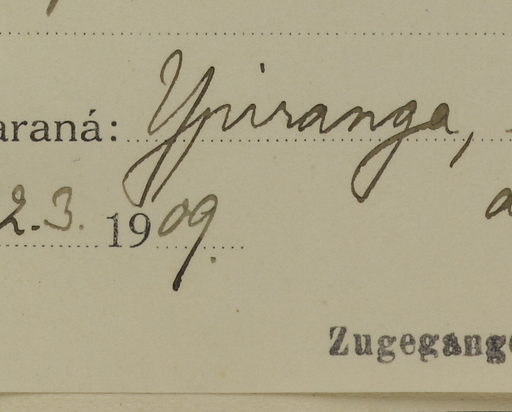 araná: Ypiranga,
2.3. 1909.
Zugegange